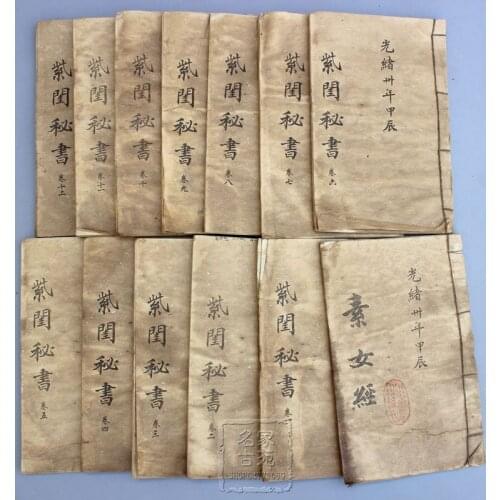 光緒卅年甲辰
紫閨秘書 卷六
紫閨秘書 卷七
紫閨秘書 卷八
紫閨秘書 卷九
紫閨秘書 卷十
紫閨秘書 卷十一
紫閨秘書 卷十二
光緒卅年甲辰
素女經
紫閨秘書 卷一
紫閨秘書 卷二
紫閨秘書 卷三
紫閨秘書 卷四
紫閨秘書 卷五